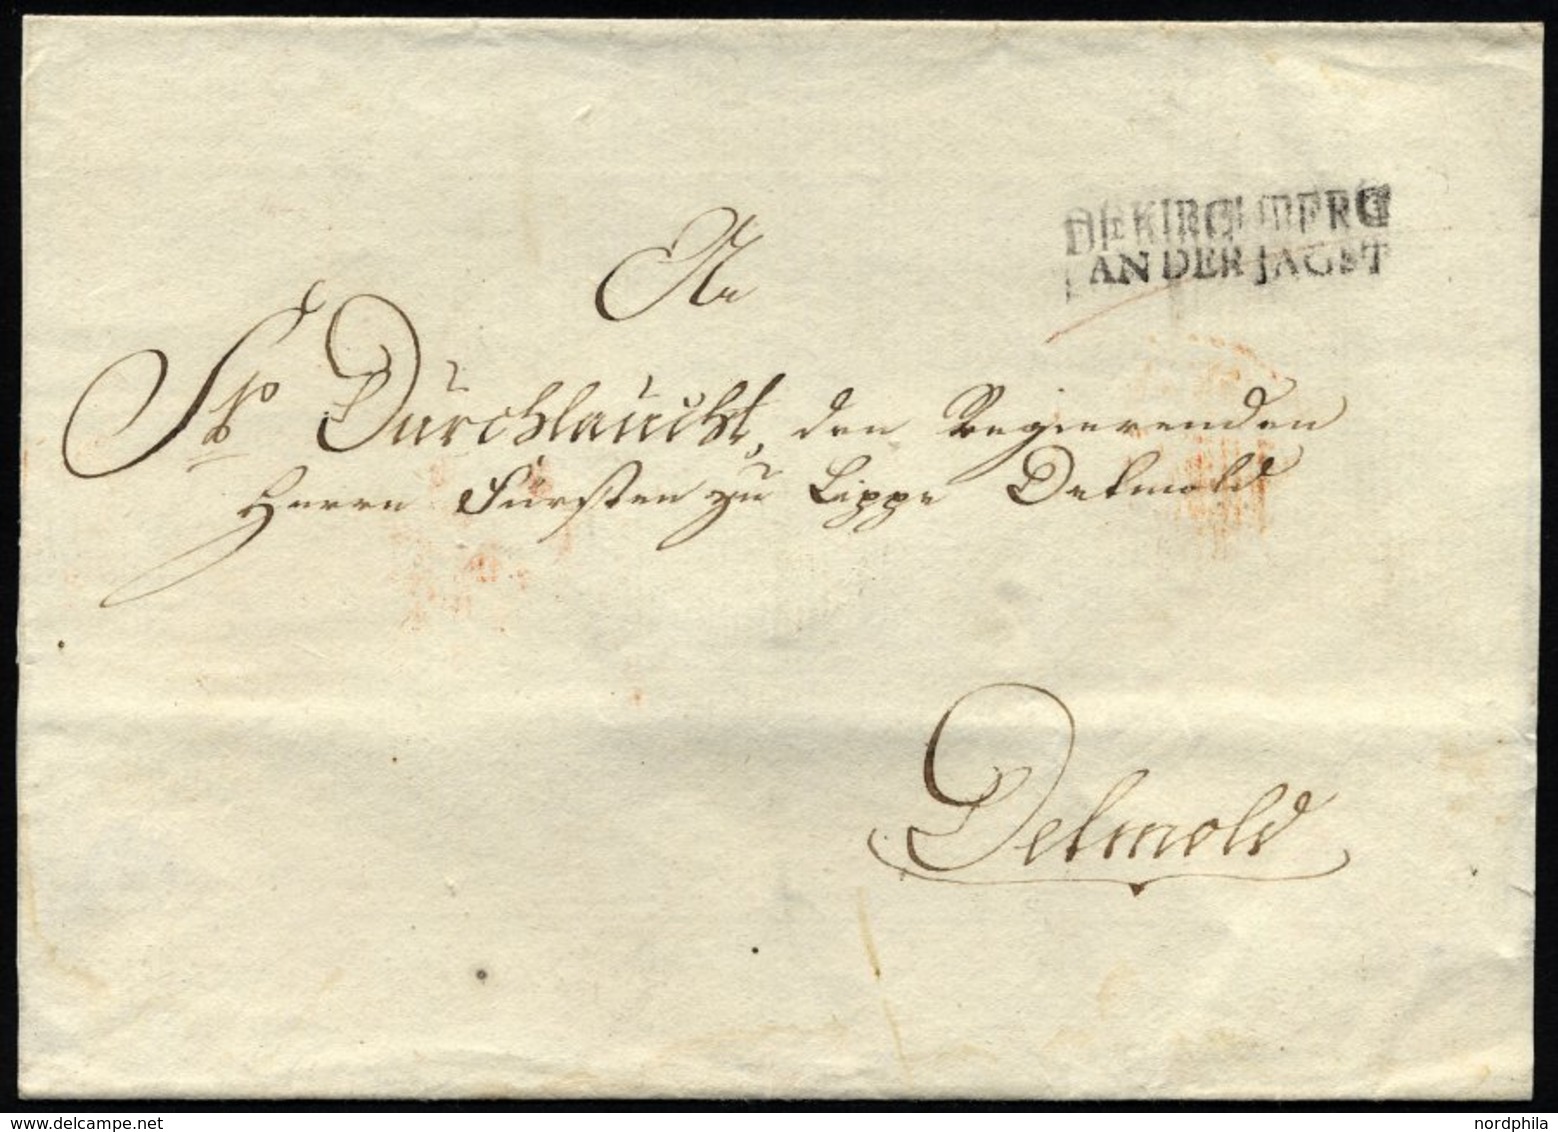 DE KIRCHBERG
AN DER JAGST
An
Sr Durchlaucht, den Regierenden
Herrn Fürsten zu Lippe Detmold
Detmold
nordphila